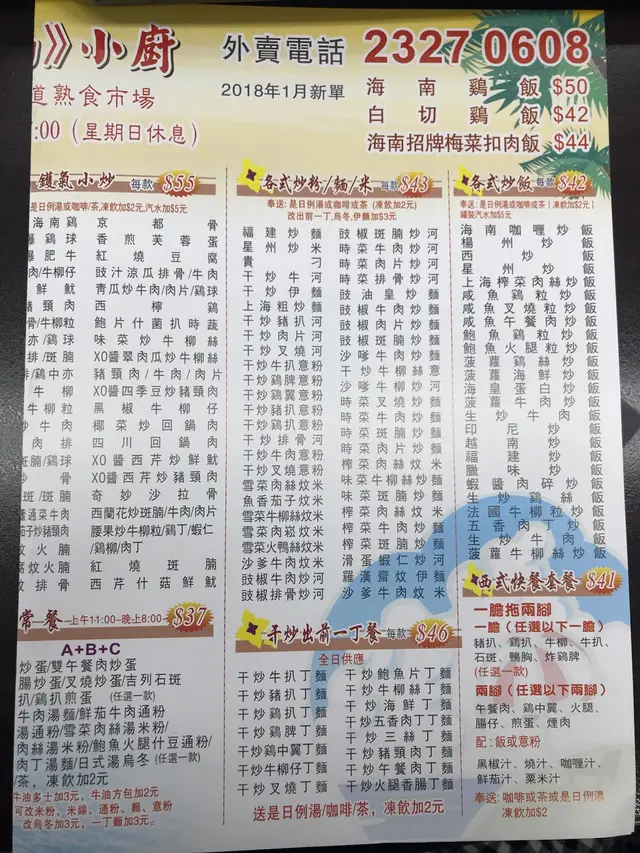 》小廚
外賣電話 2327 0608
道熟食市場
2018年1月新單
:00（星期日休息）
海南鷄飯 $50
白切鷄飯 $42
海南招牌梅菜扣肉飯 $44
鑊氣小炒 每款 $55
是日例湯或咖啡/茶,凍飲加$2元,汽水加$5元
海南鷄 京都骨
鷄球 香煎芙蓉蛋
爆肥牛 紅燒豆腐
肉/牛柳仔 豉汁涼瓜排骨/牛肉
鮮魷 青瓜炒牛肉/肉片/鷄球
豬頸肉 西檸鷄
骨/牛柳粒 鮑片什菌扒時蔬
亦/鷄球 味菜炒牛柳絲
排/斑腩 XO醬翠肉瓜炒牛柳絲
/鷄中亦 豬頸肉/牛肉/肉片
牛柳 XO醬四季豆炒豬頸肉
牛柳粒 黑椒牛柳仔
牛肉 椰菜炒回鍋肉
肉排 四川回鍋肉
斑腩/鷄球 XO醬西芹炒鮮魷
骨 XO醬西芹炒豬頸肉
斑/斑腩 奇妙沙拉骨
醬通菜牛肉 西蘭花炒斑腩/牛肉/肉片
茄子炒豬頸肉 腰果炒牛柳粒/鷄丁/蝦仁
炆火腩 /鷄柳/肉丁
腐炆火腩 紅燒斑腩
炆排骨 西芹什菇鮮魷
常餐 上午11:00-晚上8:00 $37
A+B+C
炒蛋/雙午餐肉炒蛋
腸炒蛋/叉燒炒蛋/吉列石斑
扒/鷄扒煎蛋 (任選一款)
牛肉湯麵/鮮茄牛肉通粉
湯通粉/雪菜肉絲湯米粉/
肉絲湯米粉/鮑魚火腿什豆通粉/
肉丁湯麵/日式湯烏冬 (任選一款)
/茶，凍飲加2元
牛油多士加3元，牛油方包加2元
可改米粉、米線、通粉、麵、意粉
改烏冬加3元，一丁麵加3元。
各式炒粉/麵/米 每款 $43
奉送:是日例湯或咖啡或茶 (凍飲加2元)
改出前一丁,烏冬,伊麵加3元
福建炒麵
星州炒米
貴刁
干炒牛河
干炒伊麵
上海粗炒麵
干炒豬扒河
干炒肉片河
干炒叉燒河
干炒牛扒意粉
干炒鷄脾意粉
干炒鷄翼意粉
干炒豬扒意粉
干炒鷄扒意粉
干炒排骨河
干炒牛肉意粉
干炒叉燒意粉
雪菜肉絲炆米
魚香茄子炆米
雪菜牛柳絲炆米
雪菜肉崧炆米
雪菜火鴨絲炆米
沙爹牛肉炆米
豉椒牛肉炒河
豉椒排骨炒河
豉椒斑腩炒河
時菜牛肉炒河
時菜肉片炒河
時菜排骨炒河
豉油皇炒麵
豉椒牛肉炒麵
豉椒肉片炒麵
豉椒斑腩炒麵
沙嗲牛肉炒麵
干炒牛柳絲意
沙嗲牛柳炒河
時菜叉燒炒麵
時菜牛肉炒麵
時菜斑腩炒麵
時菜肉片炒麵
榨菜肉絲炆米
味菜牛柳絲炒麵
味菜斑腩炒麵
榨菜肉絲炆米
榨菜牛肉炒麵
滑蛋蝦仁炒河
羅漢齋炆伊麵
沙爹牛肉炆米
干炒出前一丁餐 每款 $46
全日供應
干炒牛扒丁麵 干炒鮑魚片丁麵
干炒豬扒丁麵 干炒牛柳絲丁麵
干炒鷄扒丁麵 干炒海鮮丁麵
干炒鷄脾丁麵 干炒五香肉丁丁麵
干炒鷄翼丁麵 干炒三絲丁麵
干炒鷄中翼丁麵 干炒豬頸肉丁麵
干炒牛柳仔丁麵 干炒午餐肉丁麵
干炒叉燒丁麵 干炒火腿香腸丁麵
送是日例湯/咖啡/茶，凍飲加2元
各式炒飯 每款 $42
奉送:是日例湯或咖啡或茶 (凍飲加$2元)
罐裝汽水加$5元
海南咖喱炒飯
楊州炒飯
西炒飯
星州炒飯
上海榨菜肉絲炒飯
咸魚鷄粒炒飯
咸魚叉燒粒炒飯
咸魚午餐肉炒飯
鮑魚鷄粒炒飯
鮑魚火腿粒炒飯
菠蘿鷄絲炒飯
菠蘿海鮮炒飯
海皇蛋白炒飯
生炒牛肉飯
印尼炒飯
越南炒飯
福建炒飯
臘味炒飯
蝦醬肉碎炒飯
生炒鷄絲飯
法國牛柳粒炒飯
五香肉丁炒飯
生炒牛肉飯
菠蘿牛柳絲炒飯
西式快餐套餐 $41
一膽拖兩腳
一膽（任選以下一膽）
豬扒、鷄扒、牛柳、牛扒、
石斑、鴨胸、炸鷄脾
(任選一款)
兩腳（任選以下兩腳）
午餐肉、鷄中翼、火腿、
腸仔、煎蛋、煙肉
配:飯或意粉
黑椒汁、燒汁、咖喱汁、
鮮茄汁、粟米汁
奉送:咖啡或茶或是日例湯
凍飲加$2